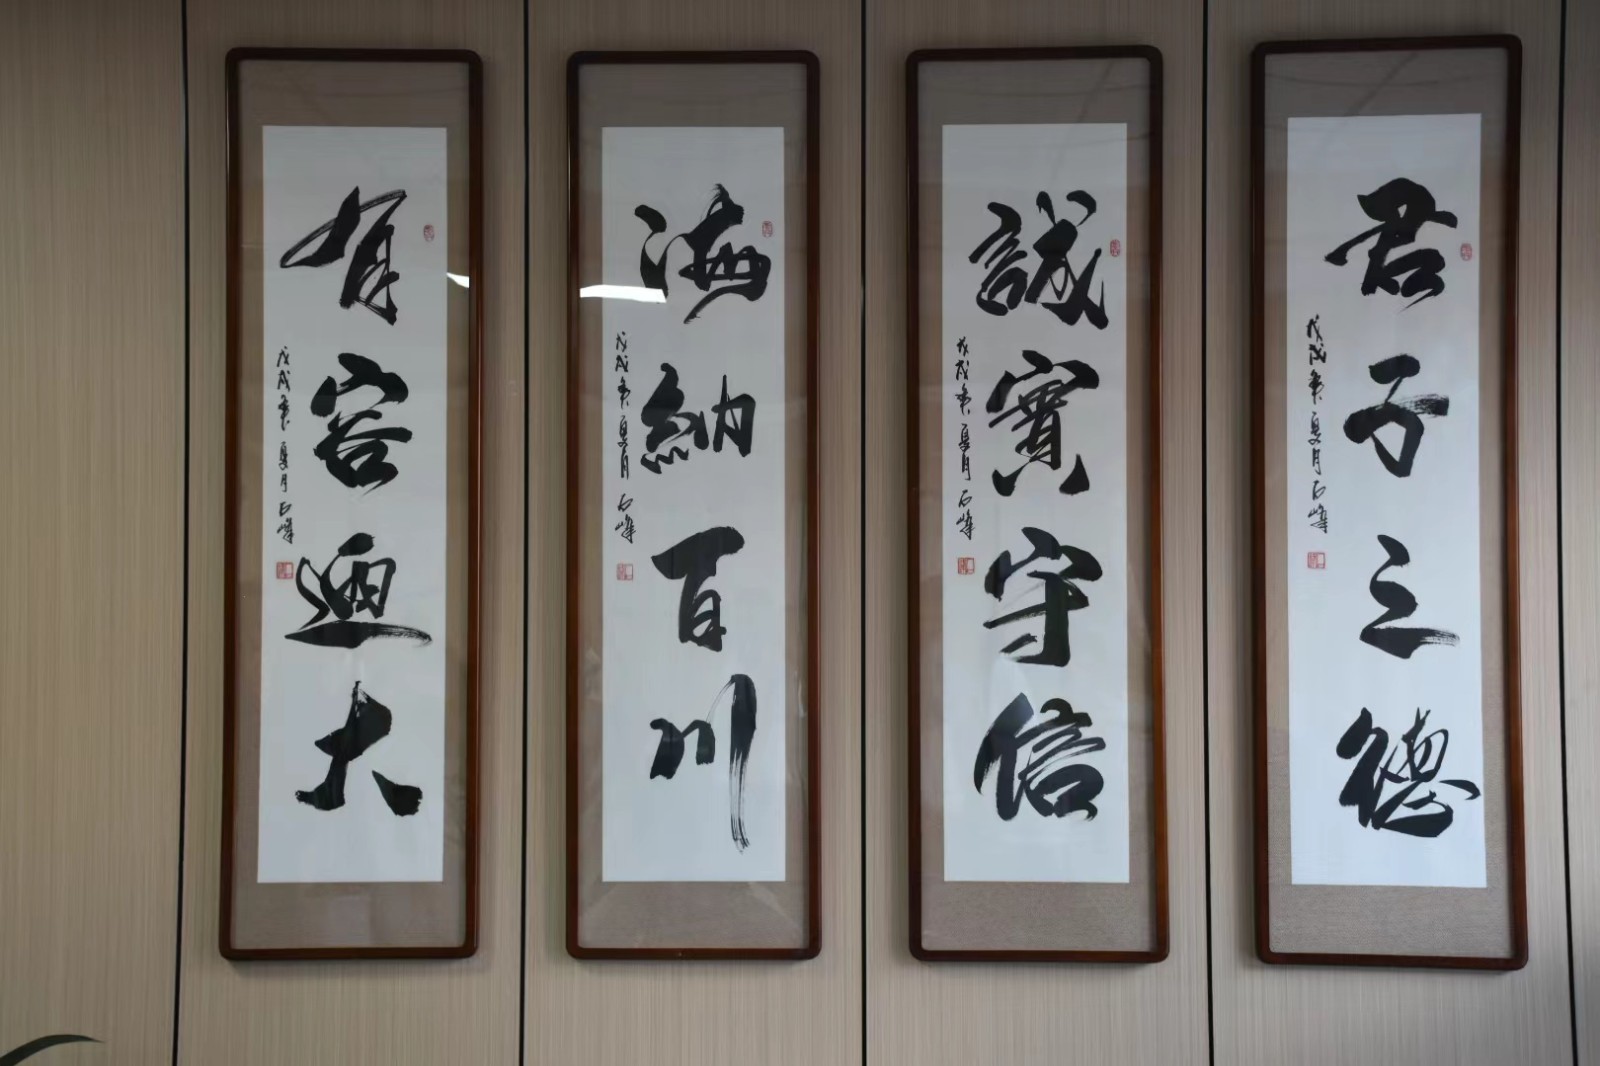 君子三德
戊戌年夏月石峰
誠實守信
戊戌年夏月石峰
海納百川
戊戌年夏月石峰
有容迺大
戊戌年夏月石峰